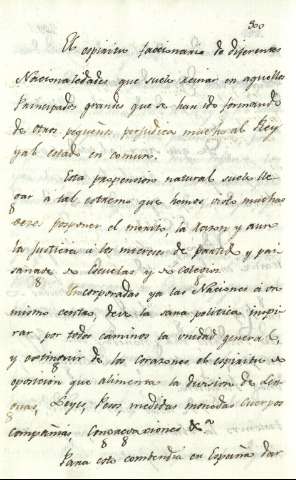 300
El espiritu faccionario de diferentes
Nacionaledades que suele reinar en aquellos
Principados grandes que se han ido formando
de otros pequeños, prejudica mucho al Rey
y al estado en comun.
Esta propension natural suele lle
var a tal estremo que hemos visto muchas
veces posponer el merito, la razon y aun
la Justicia à los intereses de partido y pai
sanage de Escuelas y de colegios.
Incorporadas ya las Naciones à un
mismo centro, deve la sana politica inspi
rar por todos caminos la unidad general,
y extinguir de los corazones el espiritu de
oposicion que alimenta la division de Len
guas, Leyes, Pesos, medidas monedas Cuerpos
compañias, Congregaciones &a
Para esto combendria en España dar